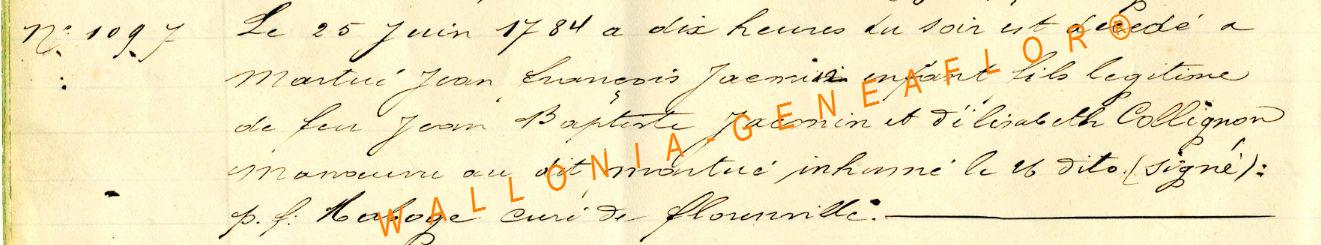 N° 1097 Le 25 Juin 1784 a dix heures du soir est décédé a
Martué Jean François Jacmin enfant fils legitime
de feu Jean Baptiste Jacmin et d'Elisabeth Collignon
manoeuvre au dit martué inhumé le 26 dito. (signé):
p. f. curé de florenville.
WALLONIA-GENEAFLOR®